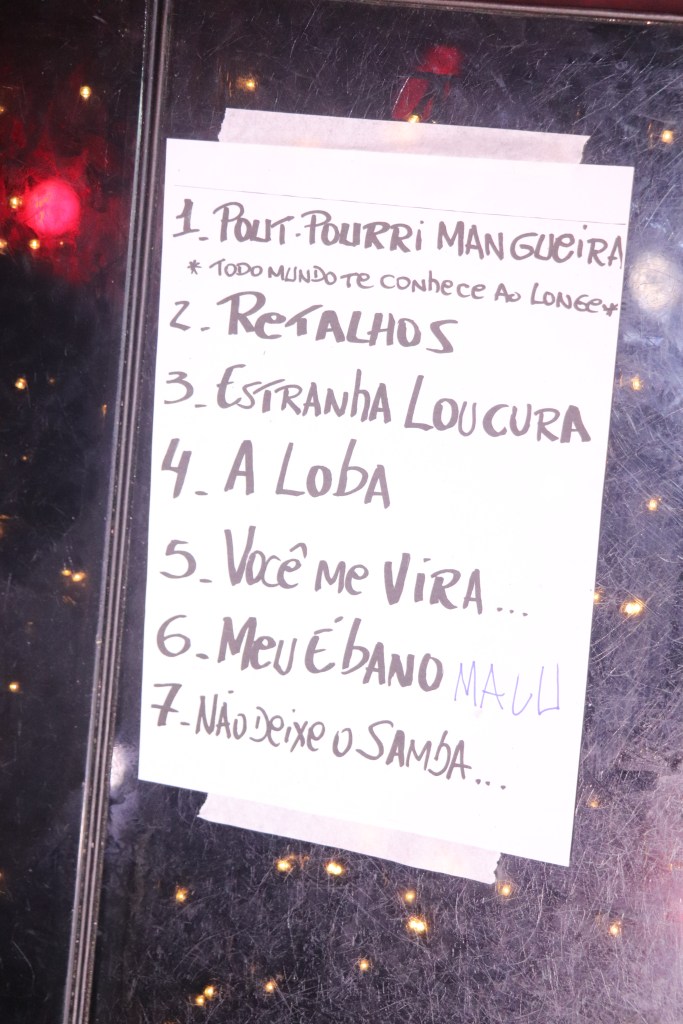 1. POUT-POURRI MANGUEIRA
* TODO MUNDO TE CONHECE AO LONGE *
2. RETALHOS
3. ESTRANHA LOUCURA
4. A LOBA
5. VOCÊ ME VIRA...
6. MEU ÉBANO MALU
7. NÃO DEIXE O SAMBA...